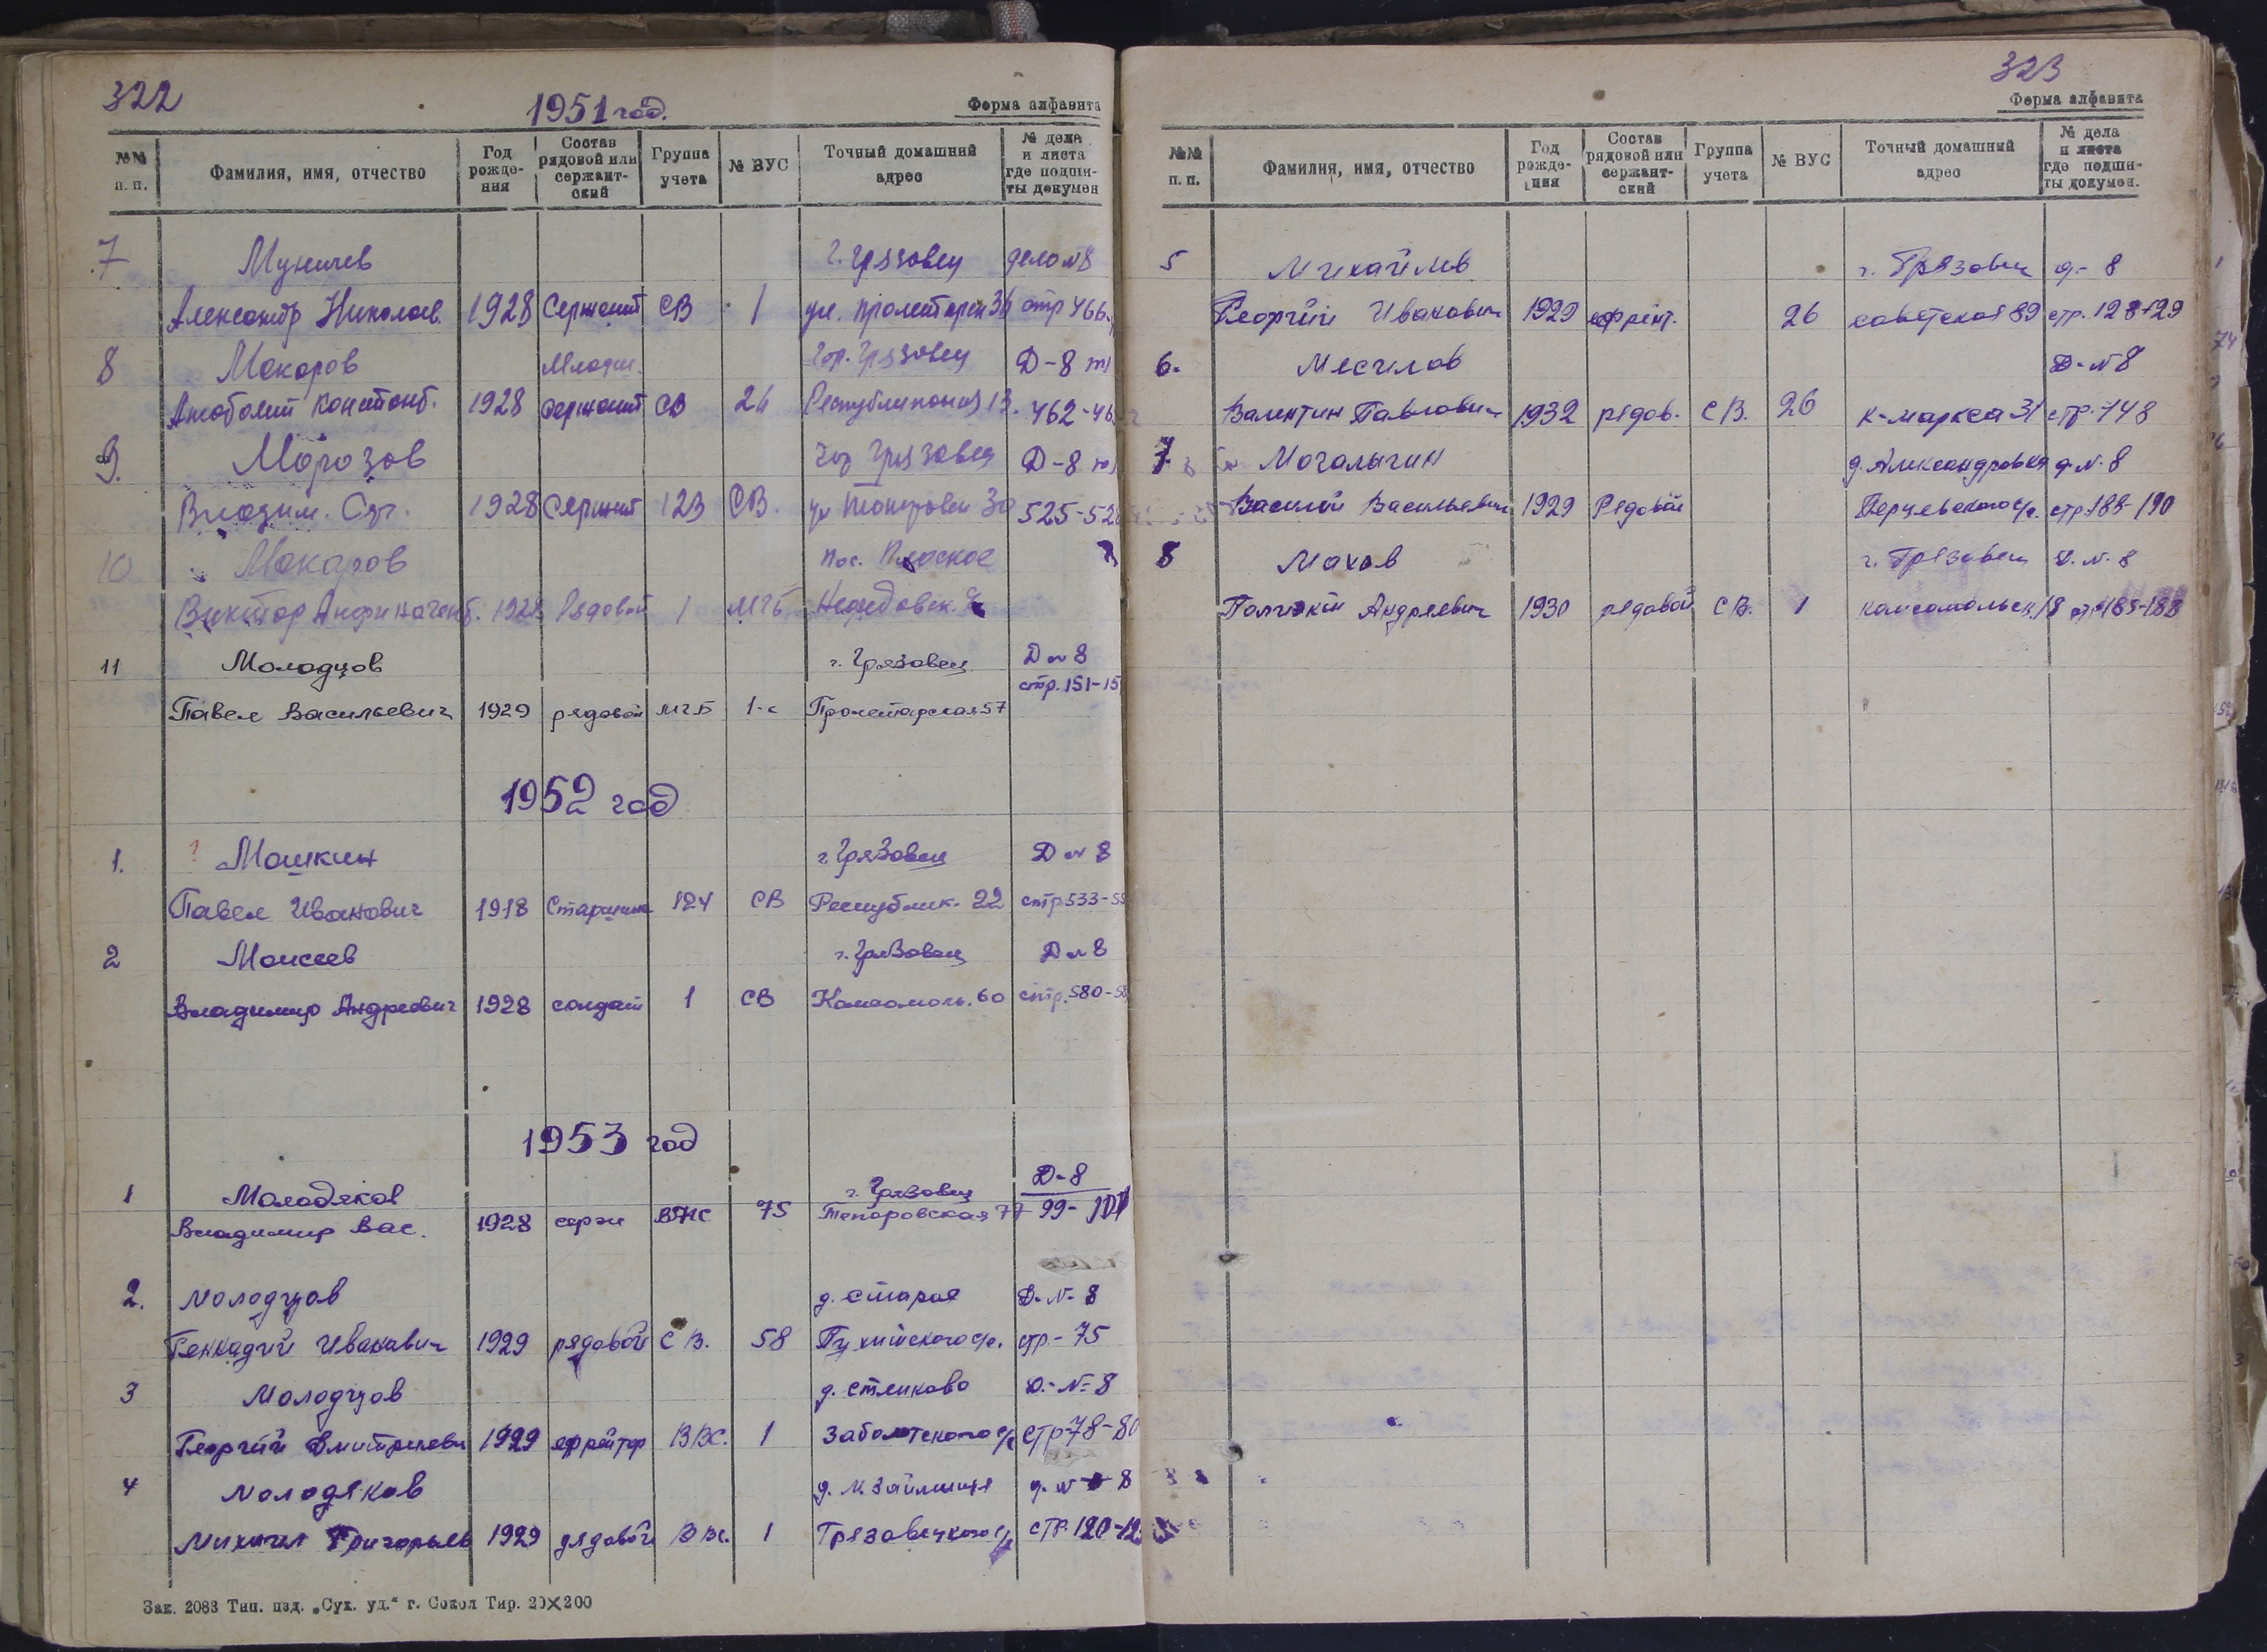 322
1951 год.
Форма алфавита
№№ п. п. Фамилия, имя, отчество Год рожде- ния Состав рядовой или сержант- ский Группа учета № ВУС Точный домашний адрес № дела и листа где подши- ты докумен
7 г. Грязовец дело №8
Александр Николаев. 1928 Сержант СВ 1 ул. Пролетарск 36 стр 466
8 Макаров Младш. Гор. Грязовец Д-8
Констант. 1928 сержант СВ 26 13. 462-46
9. Морозов Гор Грязовец Д-8
Владим. 1928 Сержант 123 СВ. ул 525-52
10 Макаров пос. Плоское
Виктор 1928 Рядовой 1 МГБ
11 Молодцов г. Грязовец Д № 8
стр. 151-15
Павел Васильевич 1929 рядовой МГБ 1-с Пролетарская 57
1952 год
1. ? Машкин г Грязовец Д № 8
Павел Иванович 1918 Старшина 124 СВ Республик. 22 стр. 533-5
2 Моисеев г. Грязовец Д № 8
Владимир Андреевич 1928 солдат 1 СВ Комсомоль. 60 стр. 580-5
1953 год
1 Молодяков г. Грязовец Д-8
Владимир Вас. 1928 серж 75 77 99-101
2. Молодцов д. Старая Д-№-8
Геннадий Иванович 1929 рядовой СВ. 58 с/с. стр-75
3 Молодцов д. Стениково Д.-№=8
Георгий Дмитриевич 1929 ефрейтор ВВС. 1 Заболотского с/с стр-78-80
4 Молодяков д. М. Займище д. № 8
Михаил Григорьев 1929 рядовой ВВС. 1 Грязовецкого с/с стр. 120-12
Зак. 2083 Тип. изд. „Сух. уд.“ г. Сокол Тир. 20×200
323
Форма алфавита
№№ п. п. Фамилия, имя, отчество Год рожде- ния Состав рядовой или сержант- ский Группа учета № ВУС Точный домашний адрес № дела и листа где подши- ты докумен.
5 Михайлов г. Грязовец д-8
Георгий Иванович 1929 26 советская 89 стр. 128-129
6. Д-№8
Валентин Павлович 1932 рядов. СВ. 26 К-маркса 31 стр-148
7 Мочалыгин д. Александровка д-№. 8
Василий Васильевич 1929 Рядовой Перцевского с/с. стр. 188-190
8 Махов г. Грязовец Д. №. 8
Андреевич 1930 рядовой СВ. 1 комсомольск. 18 стр-185-188